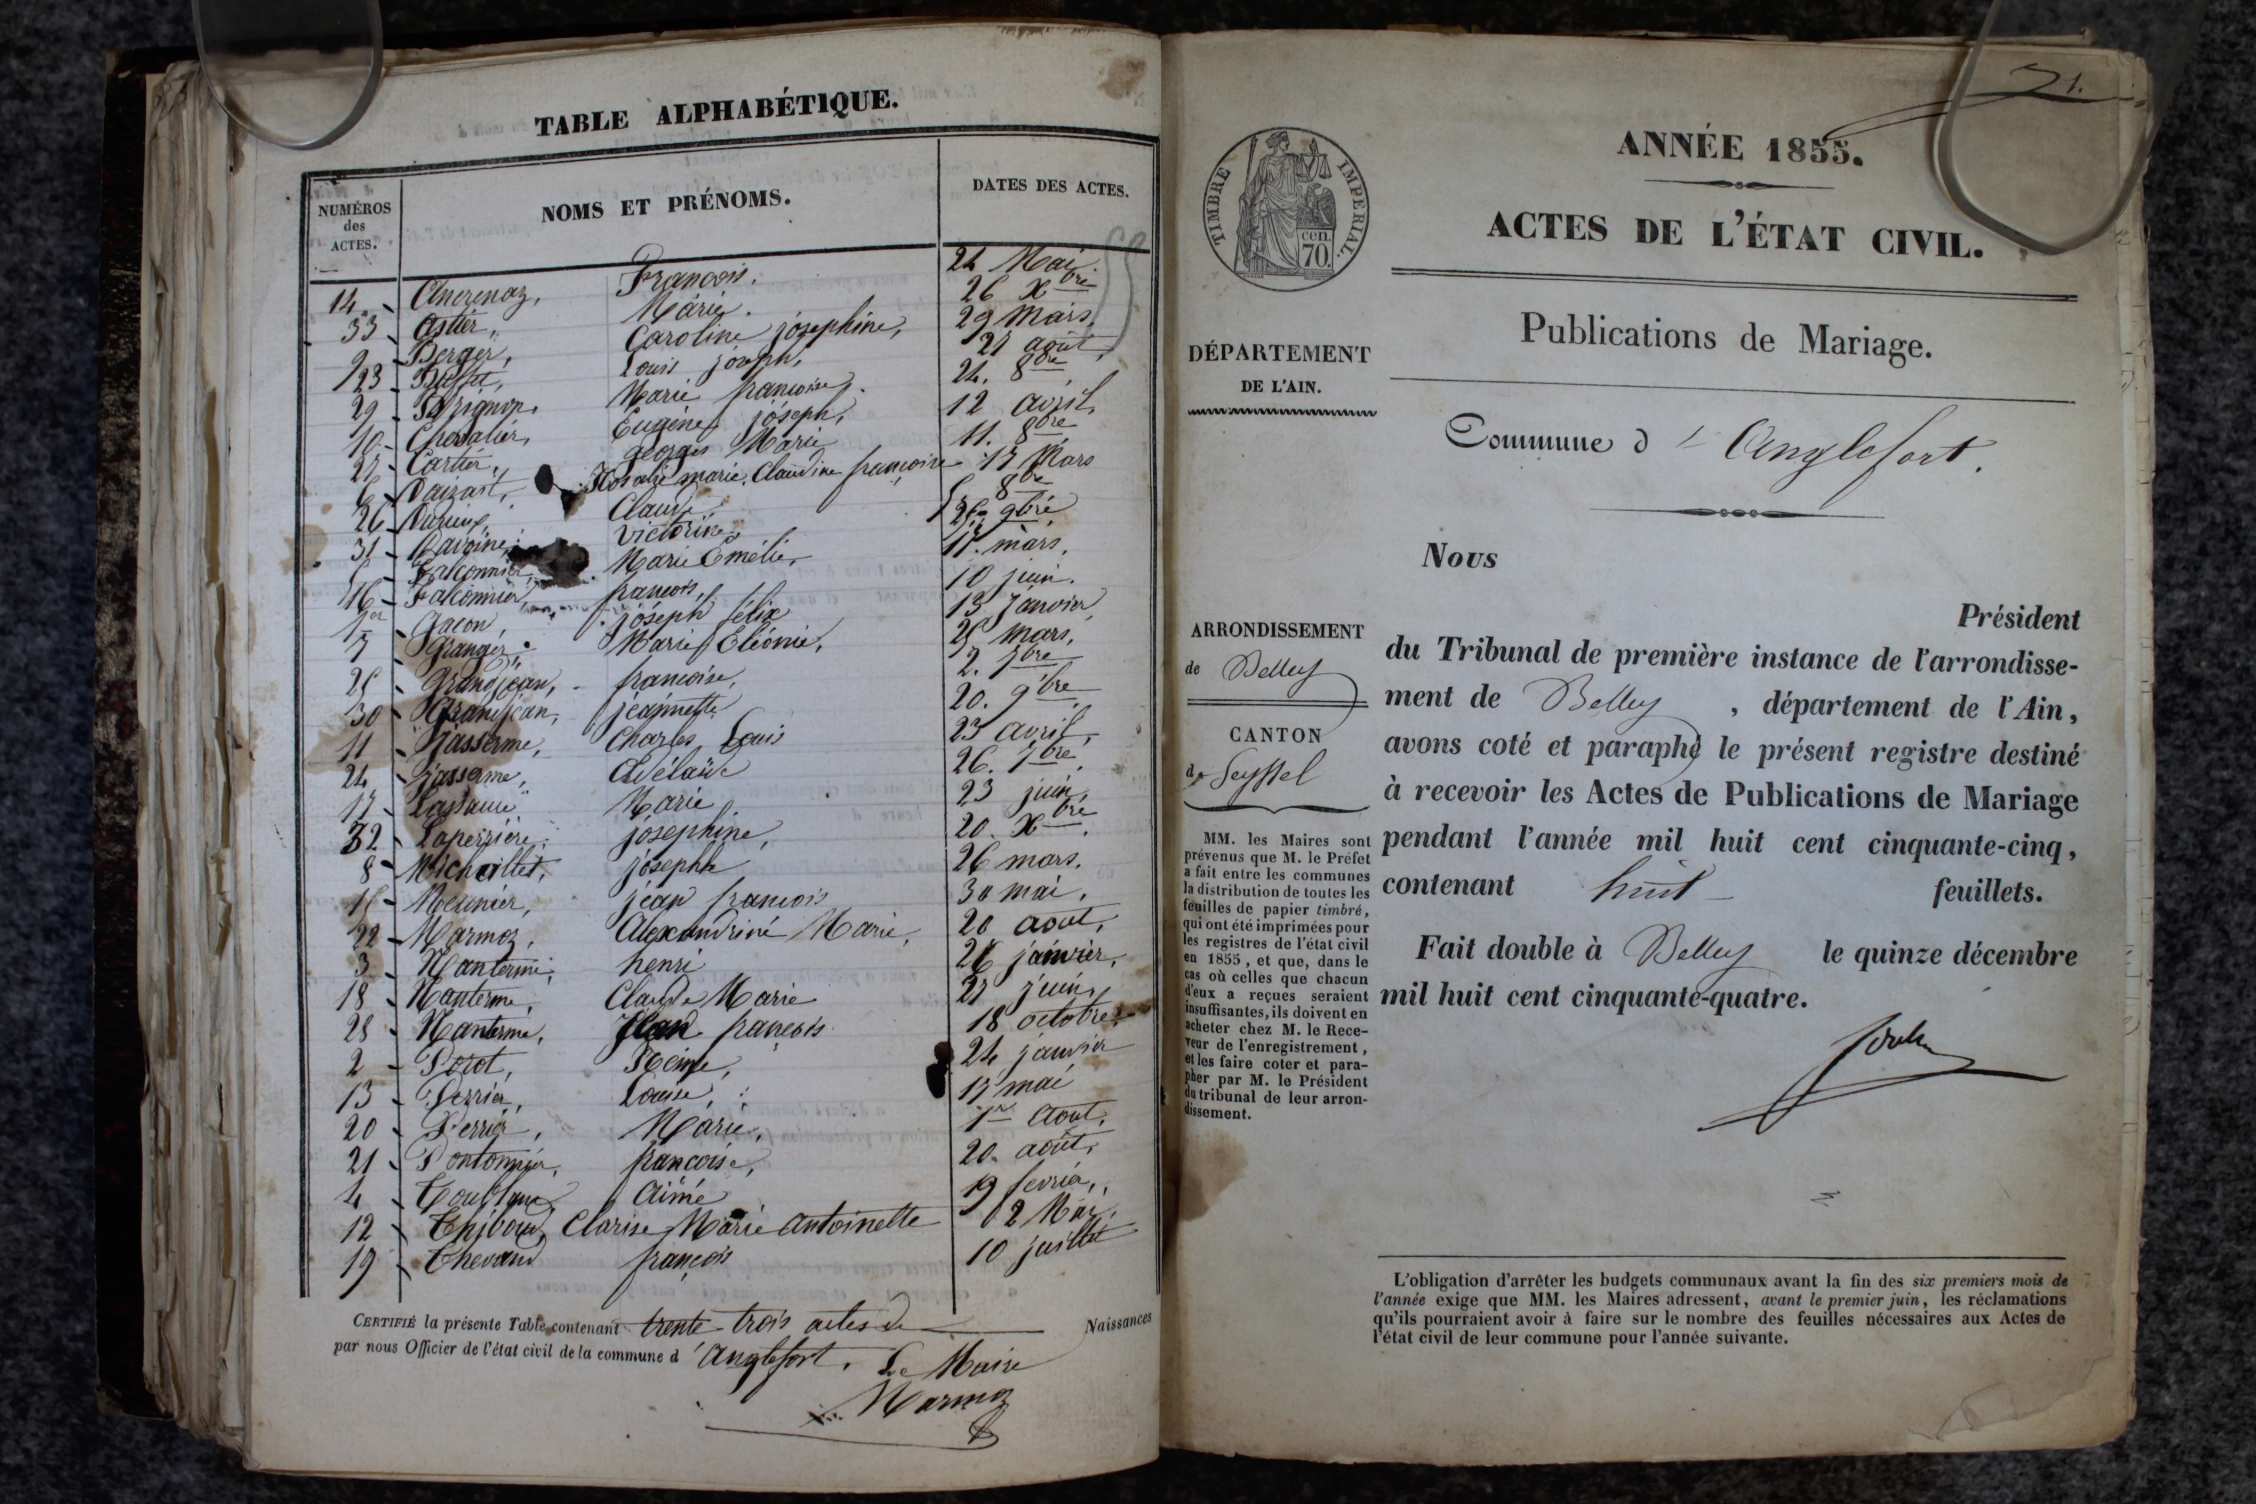 TABLE ALPHABÉTIQUE.
NUMÉROS des ACTES. NOMS ET PRÉNOMS. DATES DES ACTES.
14 François. 24 Mai
33 Astier, Marie. 26 Xbre
9 Berger, Caroline joséphine, 29 Mars,
23 Buffet, Louis joseph, 21 août,
29 Marie françoise, 24. 8bre
10 Chevalier, Eugène joseph, 12 avril,
27 Cartier, georges Marie 11. 8bre
6 Rosalie marie Claudine françoise 17 Mars
26 Claude 8bre
31 Victorine 9bre
5 Falconnier, Marie Emélie, 11. mars,
16 Falconnier françois, 10 juin.
1er Gacon joseph félix 13 janvier
7 Granger, Marie Eléonie, 25 mars,
25 Grandjean, françoise, 2. 7bre
30 Grandjean, jeannette 20. 9bre
11 Jasserme, Charles Louis 23 avril,
24 jasserme, Adélaïde 26. 7bre
17 Marie 23 juin,
32 Laperrière, joséphine, 20. Xbre
8 Michaillet, josephte 26 mars.
15 Meunier, jean francois 30 mai,
22 Marmoz, Alexandrine Marie, 20 aout,
3 Nanterme, henri janvier,
18 Nanterme, Claude Marie 27 juin,
28 Nanterme, Jean françois 18 octobre
2 Porot, Reine, 24 janvier
13 Perrier, Louise, 17 mai
20 Perrier, Marie, 1er Aout,
21 Pontonnier, françoise, 20. août,
4 Aimé 19 fevrier,
12 Thiboud, Clarise Marie Antoinette 2 Mai,
19 Thevand françois 10 juillet
CERTIFIÉ la présente Table contenant trente trois actes de Naissances
par nous Officier de l'état civil de la commune d'Anglefort. Le Maire
Marmoz
71.
TIMBRE IMPERIAL.
70 cen.
ANNÉE 1855.
ACTES DE L'ÉTAT CIVIL.
Publications de Mariage.
Commune d'Anglefort.
DÉPARTEMENT
DE L'AIN.
ARRONDISSEMENT
de Belley
CANTON
de Seyssel
MM. les Maires sont
prévenus que M. le Préfet
a fait entre les communes
la distribution de toutes les
feuilles de papier timbré,
qui ont été imprimées pour
les registres de l'état civil
en 1855, et que, dans le
cas où celles que chacun
d'eux a reçues seraient
insuffisantes, ils doivent en
acheter chez M. le Rece-
veur de l'enregistrement,
et les faire coter et para-
pher par M. le Président
du tribunal de leur arron-
dissement.
Nous
Président
du Tribunal de première instance de l'arrondisse-
ment de Belley, département de l'Ain,
avons coté et paraphé le présent registre destiné
à recevoir les Actes de Publications de Mariage
pendant l'année mil huit cent cinquante-cinq,
contenant huit feuillets.
Fait double à Belley le quinze décembre
mil huit cent cinquante-quatre.
L'obligation d'arrêter les budgets communaux avant la fin des six premiers mois de
l'année exige que MM. les Maires adressent, avant le premier juin, les réclamations
qu'ils pourraient avoir à faire sur le nombre des feuilles nécessaires aux Actes de
l'état civil de leur commune pour l'année suivante.